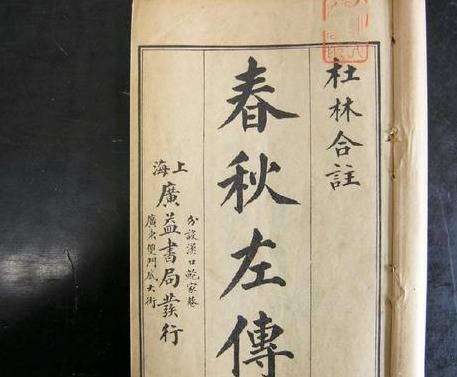 杜林合註
春秋左傳
上海
分設漢口鮑家巷
廣益書局發行
廣東門底大街